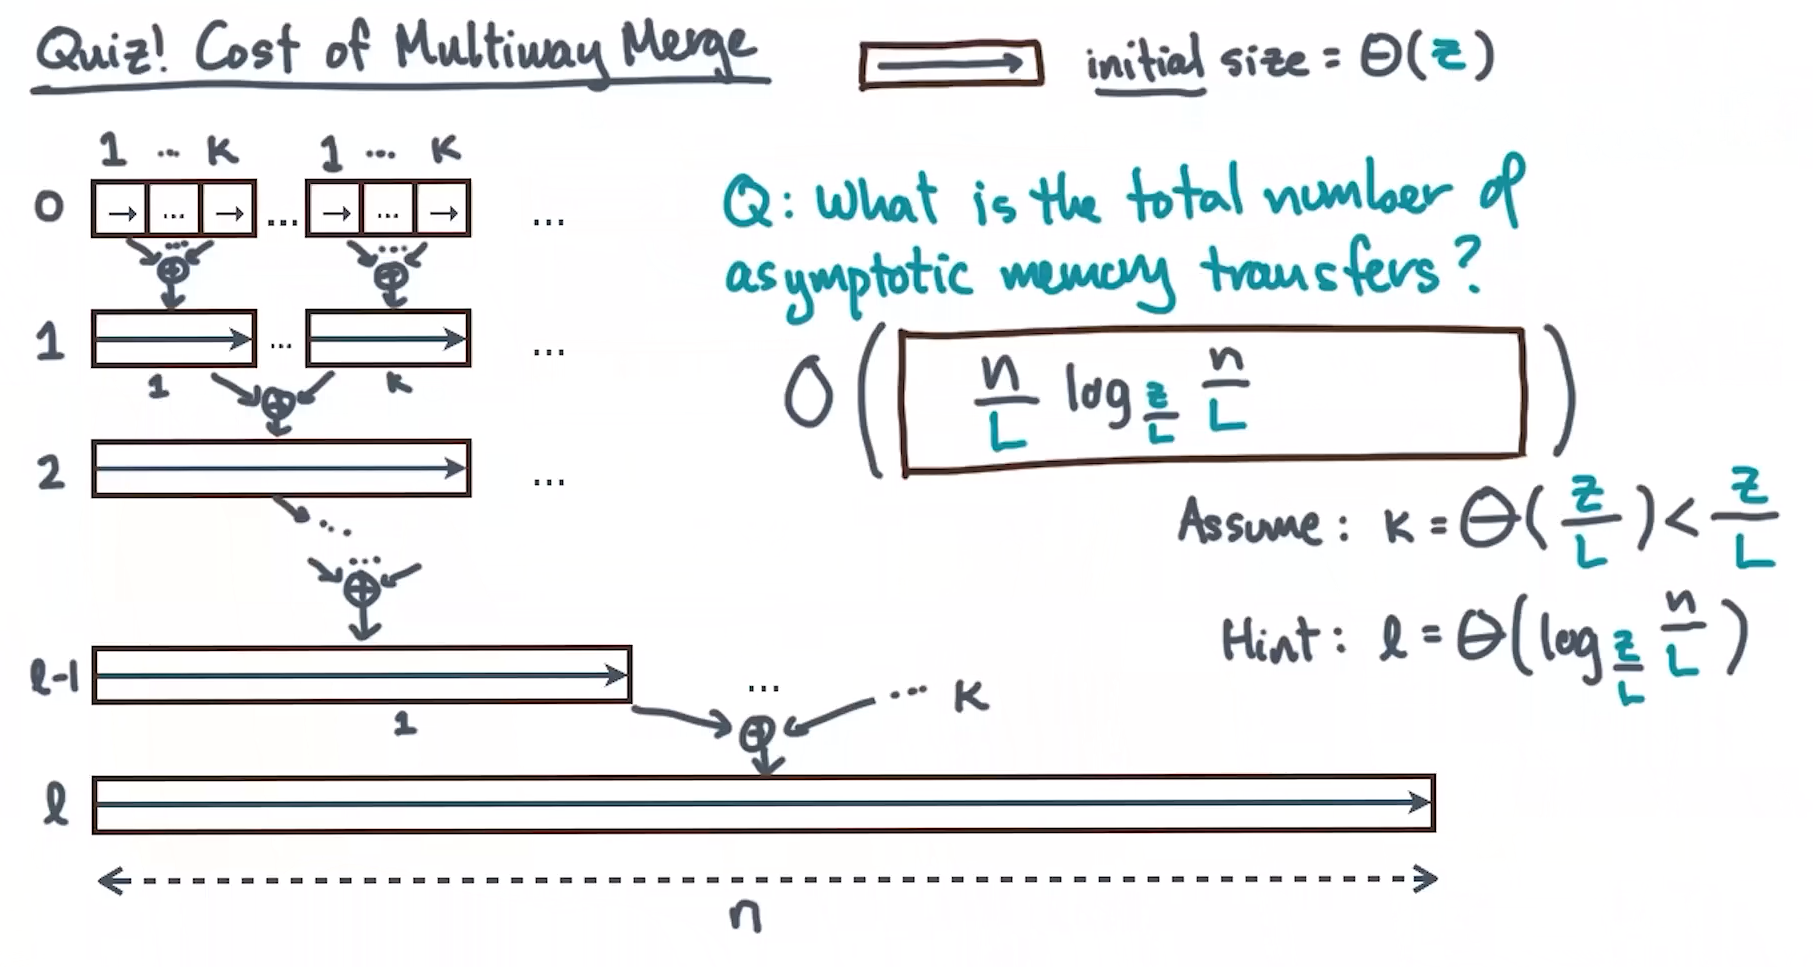 Quiz! Cost of Multiway Merge
initial size = Θ(Z)
1 ... K 1 ... K
0 → ... → ... → ... → ...
...
⊕ ⊕
1 ... ...
1 K
⊕
2 ...
...
...
⊕
l-1 ... ... K
1
⊕
l
n
Q: What is the total number of
asymptotic memory transfers?
O( n/L log_{Z/L} n/L )
Assume: K = Θ(Z/L) < Z/L
Hint: l = Θ(log_{Z/L} n/L)